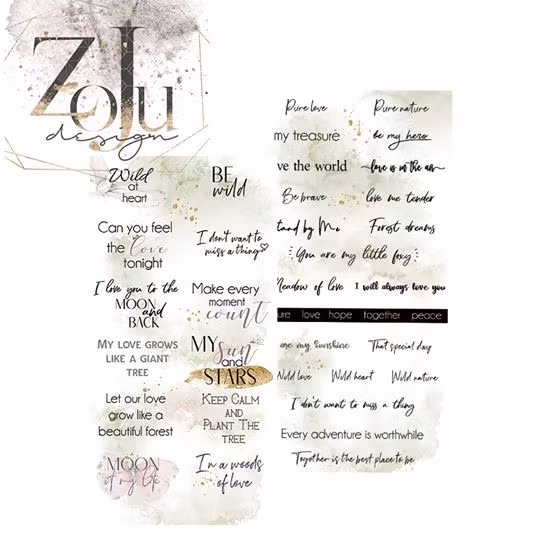 ZoJu
design
Wild
at
heart
BE
wild
Can you feel
the love
tonight
I don't want to
miss a thing
I love you to the
MOON
and
BACK
Make every
moment
count
MY LOVE GROWS
LIKE A GIANT
TREE
MY sun
and
STARS
Let our love
grow like a
beautiful forest
KEEP CALM
AND
PLANT THE
TREE
MOON
of my life
In a woods
of love
Pure love
Pure nature
my treasure
be my hero
ve the world
love is in the air
Be brave
love me tender
tand by Me
Forest dreams
You are my little foxy
Meadow of love
I will always love you
ure love hope together peace
are my sunshine
That special day
Wild love
Wild heart
Wild nature
I don't want to miss a thing
Every adventure is worthwhile
Together is the best place to be